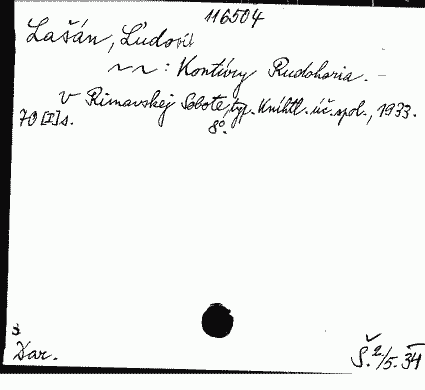 116504
Lašán, Ľudovít
~ ~ : Kontúry Rudohoria. –
V Rimavskej Sobote, typ. Kníhtl. úč. spol., 1933.
70 [I] s. 8°.
S.
Dar. Š. 2/5. 34